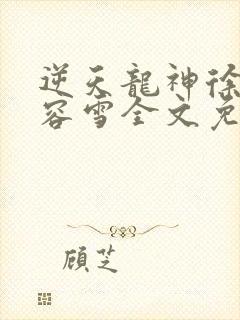 逆天龍神徐
容雪全文免
顧芝